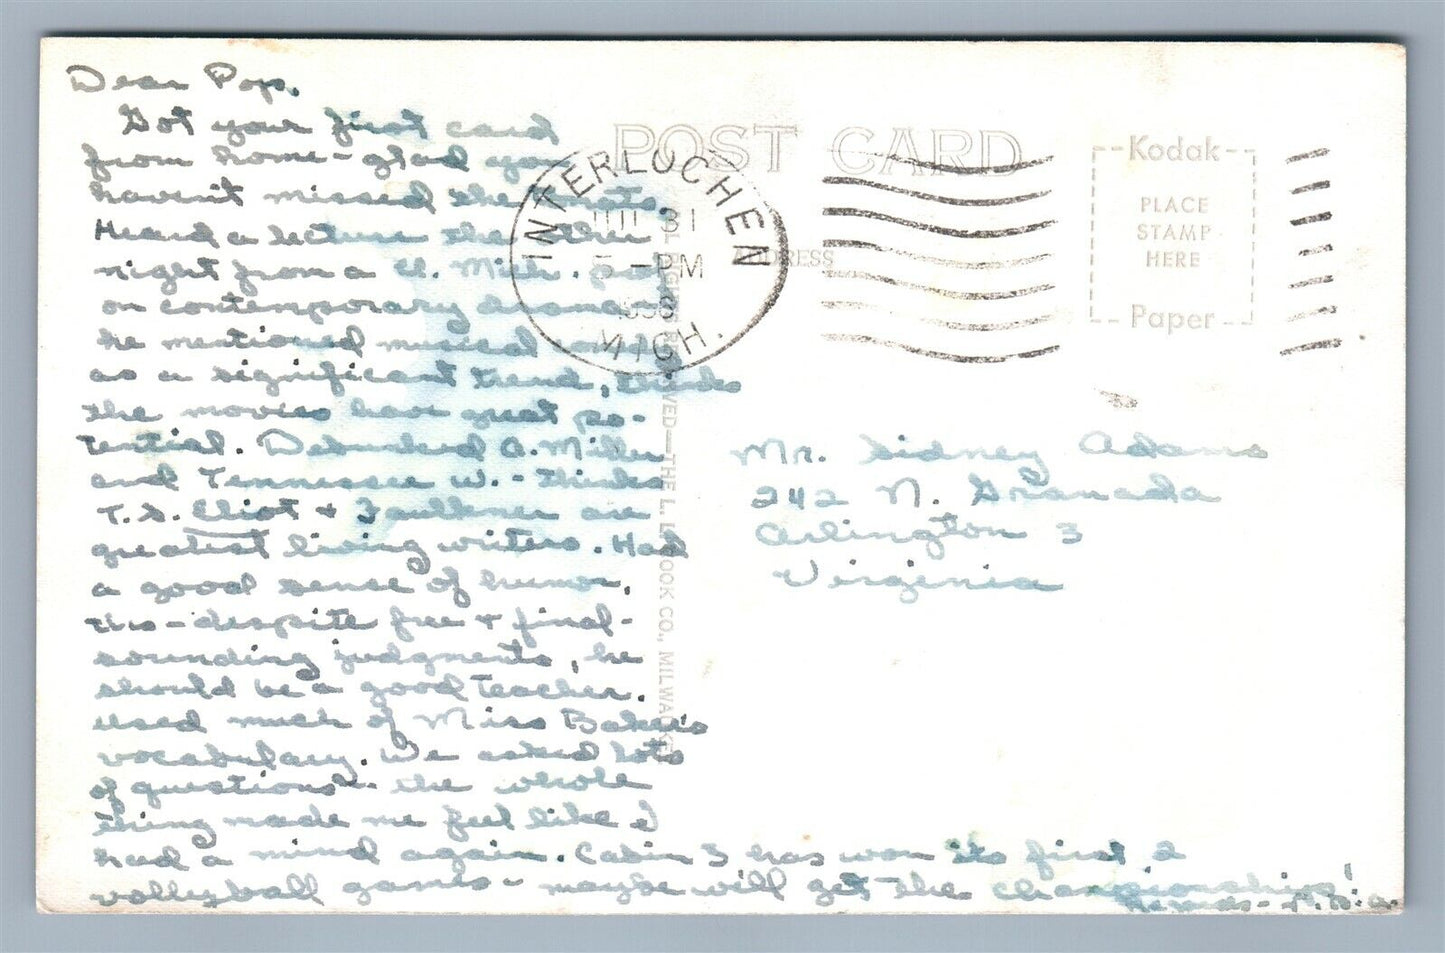 Dear Pops,
Got your first card
from home - glad you
haven't missed the
Heard a lecture the other
night from a U. Mich. prof
on contemporary drama
he mentioned musical
as a significant trend, thinks
the movies have great po-
tential. Defended A. Miller
and Tennessee W. - thinks
T.S. Eliot & Faulkner are
greatest living writers. Had
a good sense of humor,
too - despite free & final-
sounding judgments, he
should be a good teacher.
used much of Miss Baker's
vocabulary. We asked lots
of questions - the whole
thing made me feel like I
had a mind again. Cabin 3 has won its first 2
volleyball games - maybe will get the championship!
POST CARD
ADDRESS
INTERLOCHEN
JUL 31
5 - PM
1958
MICH.
Kodak
PLACE
STAMP
HERE
Paper
Mr. Sidney Adams
242 N. Granada
Arlington 3
Virginia
ALL RIGHTS RESERVED—THE L. L. COOK CO., MILWAUKEE